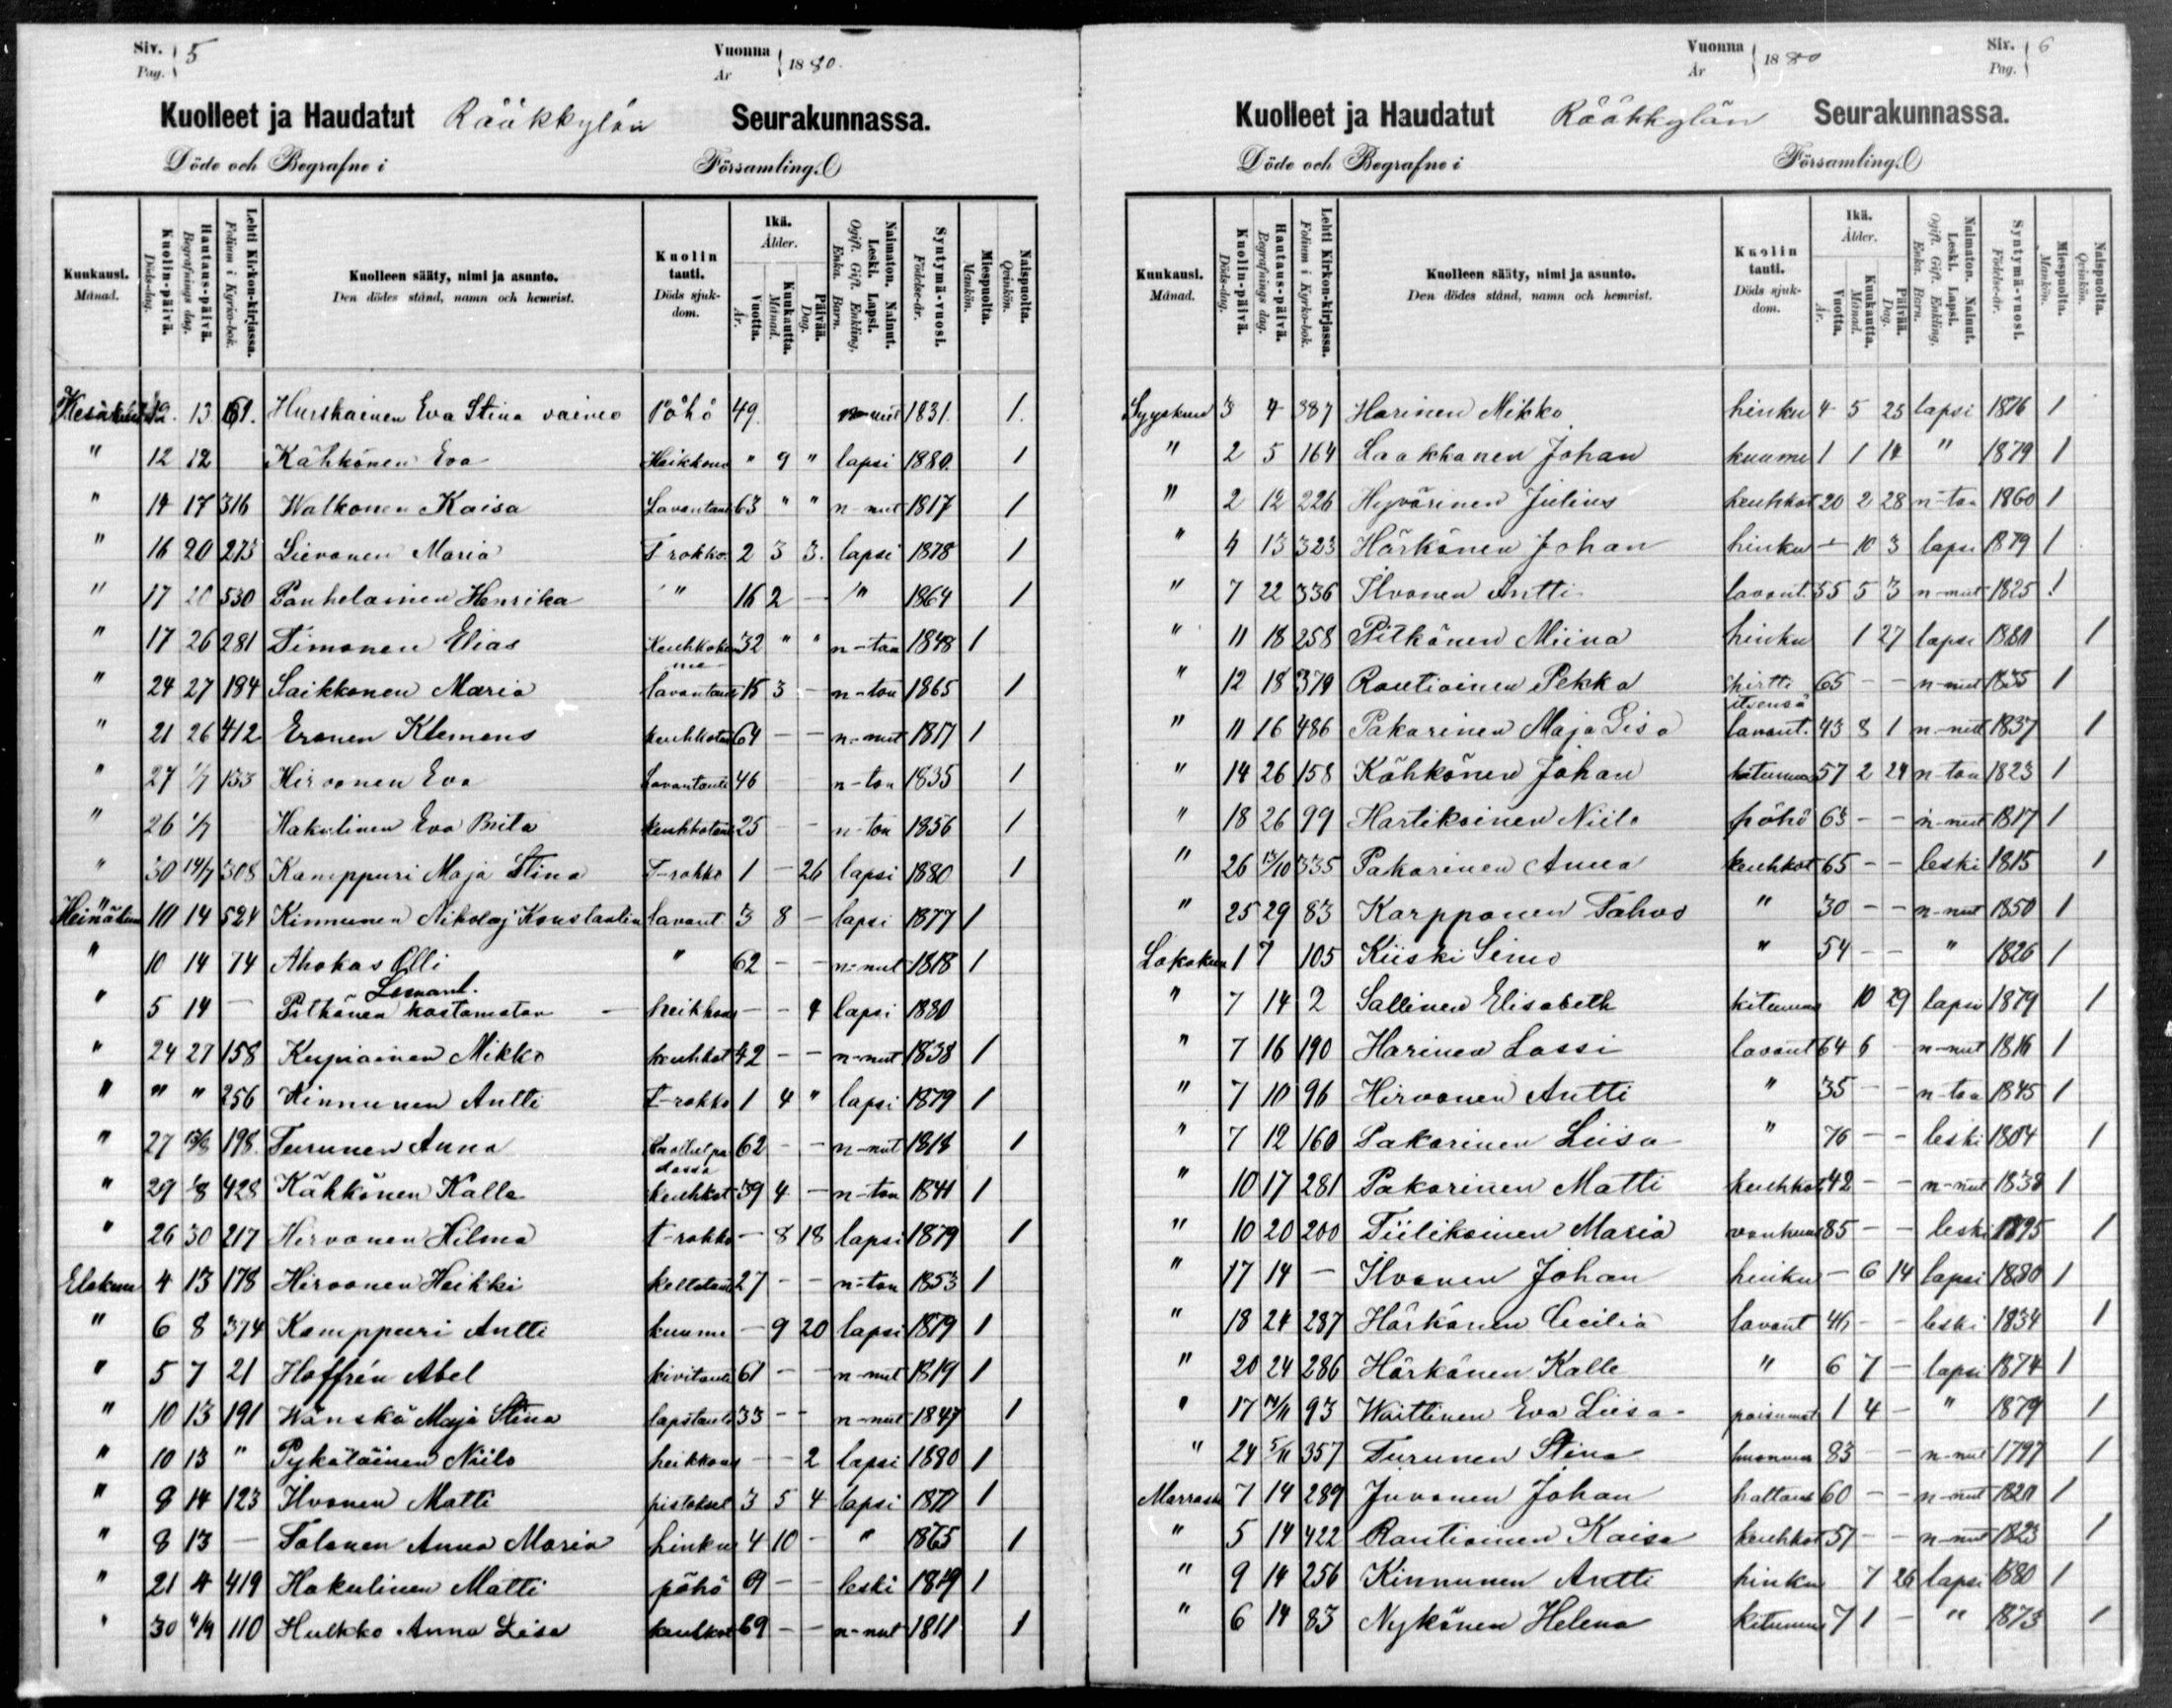 Siv. Pag. 5
Vuonna År 1880.
Kuolleet ja Haudatut Rääkkylän Seurakunnassa.
Döde och Begrafne i Församling.
Kuukausi. Månad.
Kuolin-päivä. Döds-dag.
Hautaus-päivä. Begrafnings dag.
Lehti Kirkon-kirjassa. Folium i Kyrko-bok.
Kuolleen sääty, nimi ja asunto. Den dödes stånd, namn och hemvist.
Kuolin tauti. Döds sjukdom.
Ikä. Ålder.
Vuotta. År.
Kuukautta. Månad.
Päivää. Dag.
Naimaton. Nainut. Leski. Lapsi. Ogift. Gift. Enkling. Enka. Barn.
Syntymä-vuosi. Födelse-år.
Miespuolta. Mankön.
Naispuolta. Qvinkön.
13 Hurskainen Eva Stina vaimo Pöhö 49. 1831. 1.
" 12 12 Kähkönen Eva Heikkous " 9 " lapsi 1880 1
" 14 17 316 Walkonen Kaisa Lavantaut 63 " " n-nut 1817 1
" 16 20 273 Lievonen Maria T rokko 2 3 3. lapsi 1878 1
" 17 20 530 Panhelainen Henrika " 16 2 - " 1864 1
" 17 26 281 Timonen Elias 32 " " n-ton 1848 1
" 24 27 184 Saikkonen Maria lavantauti 15 3 - n-ton 1865 1
" 21 26 412 Eronen Klemens keuhkotaut 64 - - n-nut 1817 1
" 27 1/7 133 Hirvonen Eva Lavantauti 46 - - n-ton 1835 1
" 26 1/7 Hakulinen Eva Brita keuhkotaut 25 - - n-ton 1856 1
" 30 14/7 308 Kamppuri Maja Stina T-rokko 1 - 26 lapsi 1880 1
Heinäkuu 10 14 524 Kinnunen Nikolaj Konstantin lavant. 3 8 - lapsi 1877 1
" 10 14 74 Ahokas Olli " 62 - - n-nut 1818 1
" 5 14 - Pitkönen kastamaton heikkous - - 4 lapsi 1880
" 24 27 158 Kupiainen Mikko keuhkot 42 - - n-nut 1838 1
" " " 256 Kinnunen Antti T-rokko 1 4 " lapsi 1879 1
" 27 198. Turunen Anna 62 - - n-nut 1818 1
" 29 1/8 428 Kähkönen Kalle keuhkot 39 4 - n-ton 1841 1
" 26 30 217 Hirvonen Hilma t-rokko - 8 18 lapsi 1879 1
Elokuu 4 13 178 Hirvonen Heikki keltataut 27 - - n-ton 1853 1
" 6 8 374 Kamppuri Antti kuume - 9 20 lapsi 1879 1
" 5 7 21 Hoffrén Abel kivitauti 61 - - n-nut 1819 1
" 10 13 191 Wänskä Maja Stina lapsitauti 33 - - n-nut 1847 1
" 10 13 " Pykäläinen Niilo heikkous - - 2 lapsi 1880 1
" 9 14 123 Ilvonen Matti pistokset 3 5 4 lapsi 1877 1
" 8 13 - Tolonen Anna Maria hinku 4 10 - " 1
" 21 4 419 Hakulinen Matti pöhö - - leski 1819 1
" 30 4/9 110 Hulkko Anna Lisa keuhkot 69 - - n-nut 1811 1
Vuonna År 1880
Siv. Pag. 6
Kuolleet ja Haudatut Rääkkylän Seurakunnassa.
Döde och Begrafne i Församling.
Kuukausi. Månad.
Kuolin-päivä. Döds-dag.
Hautaus-päivä. Begrafnings dag.
Lehti Kirkon-kirjassa. Folium i Kyrko-bok.
Kuolleen sääty, nimi ja asunto. Den dödes stånd, namn och hemvist.
Kuolin tauti. Döds sjukdom.
Ikä. Ålder.
Vuotta. År.
Kuukautta. Månad.
Päivää. Dag.
Naimaton. Nainut. Leski. Lapsi. Ogift. Gift. Enkling. Enka. Barn.
Syntymä-vuosi. Födelse-år.
Miespuolta. Mankön.
Naispuolta. Qvinkön.
Syyskuu 3 4 387 Harinen Mikko hinku 4 5 25 lapsi 1876 1
" 2 5 164 Laakkonen Johan kuume 1 1 14 " 1879 1
" 2 12 226 Hyvärinen Julius keuhkot 20 2 28 n-ton 1860 1
" 4 13 323 Härkönen Johan hinku - 10 3 lapsi 1879 1
" 7 22 336 Ilvonen Antti lavant. 55 5 3 n-nut 1825 1
" 11 18 258 Pitkönen Miina hinku 1 27 lapsi 1880 1
" 12 18 379 Rautiainen Pekka hirtti itsensä 65 - - n-nut 1835 1
" 11 16 486 Pakarinen Maja Lisa lavant. 43 8 1 n-nut 1837 1
" 14 26 158 Kähkönen Johan kitumus 57 2 24 n-ton 1823 1
" 18 26 99 Hartikainen Niilo pöhö 63 - - n-nut 1817 1
" 26 13/10 335 Pakarinen Anna keuhkot 65 - - leski 1815 1
" 25 29 83 Karpponen Tahvo " 30 - - n-nut 1850 1
Lokakuu 1 7 105 Kiiski Simo " 54 - - " 1826 1
" 7 14 2 Sallinen Elisabeth kitumus 10 29 lapsi 1879 1
" 7 16 190 Harinen Lassi lavant 64 6 - n-nut 1816 1
" 7 10 96 Hirvonen Antti " 35 - - n-ton 1845 1
" 7 12 160 Pakarinen Liisa " 76 - - leski 1804 1
" 10 17 281 Pakarinen Matti keuhkot 42 - - n-nut 1838 1
" 10 20 200 Tiilikainen Maria vanhuus 85 - - leski 1795 1
" 17 14 - Ilvonen Johan hinku - 6 14 lapsi 1880 1
" 18 24 287 Härkönen Cecilia lavant 46 - - leski 1834 1
" 20 24 286 Härkönen Kalle " 6 7 - lapsi 1874 1
" 17 93 Waittinen Eva Liisa paisumat 1 4 - " 1879 1
" 24 5/11 357 Turunen Stina 83 - - n-nut 1797 1
Marrask 7 14 289 Juvonen Johan halvaus 60 - - n-nut 1820 1
" 5 14 422 Rautiainen Kaisa keuhkot 57 - - n-nut 1823 1
" 9 14 256 Kinnunen Antti hinku 7 26 lapsi 1880 1
" 6 14 83 Nykönen Helena kitumus 7 1 - " 1873 1